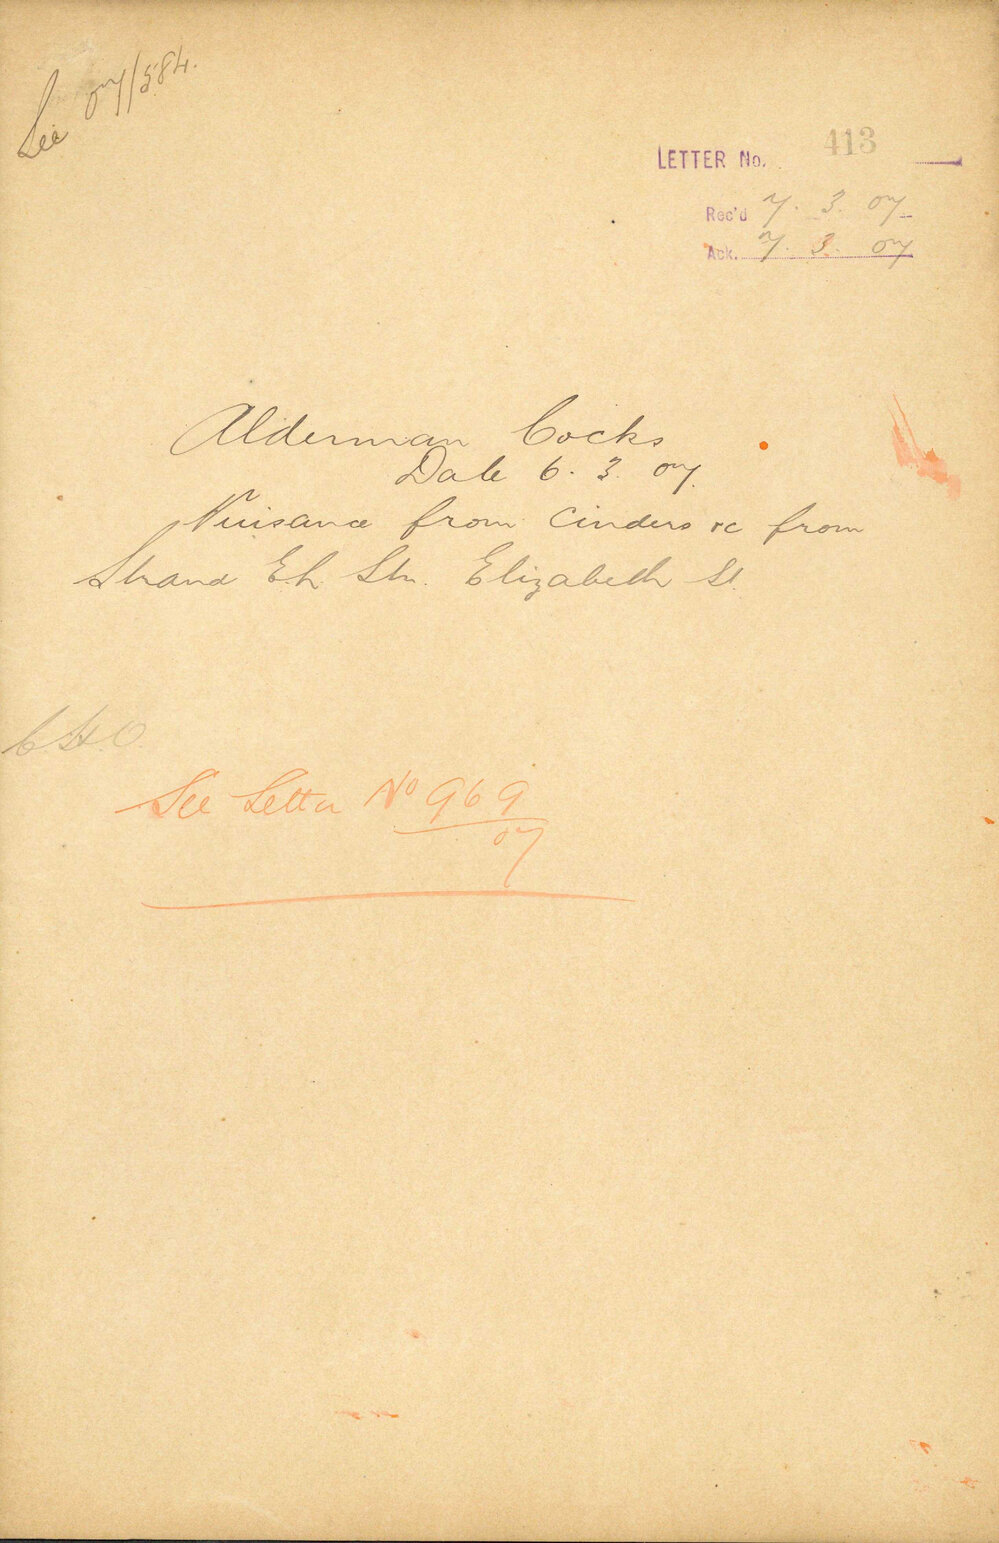 See 07/584.
LETTER No. 413
Rec'd 7. 3. 07
Ack. 7. 3. 07
Alderman Cocks
Date 6. 3. 07.
Nuisance from Cinders &c from
Strand E.L. Stn. Elizabeth St.
C.H.O.
See Letter No 969
07